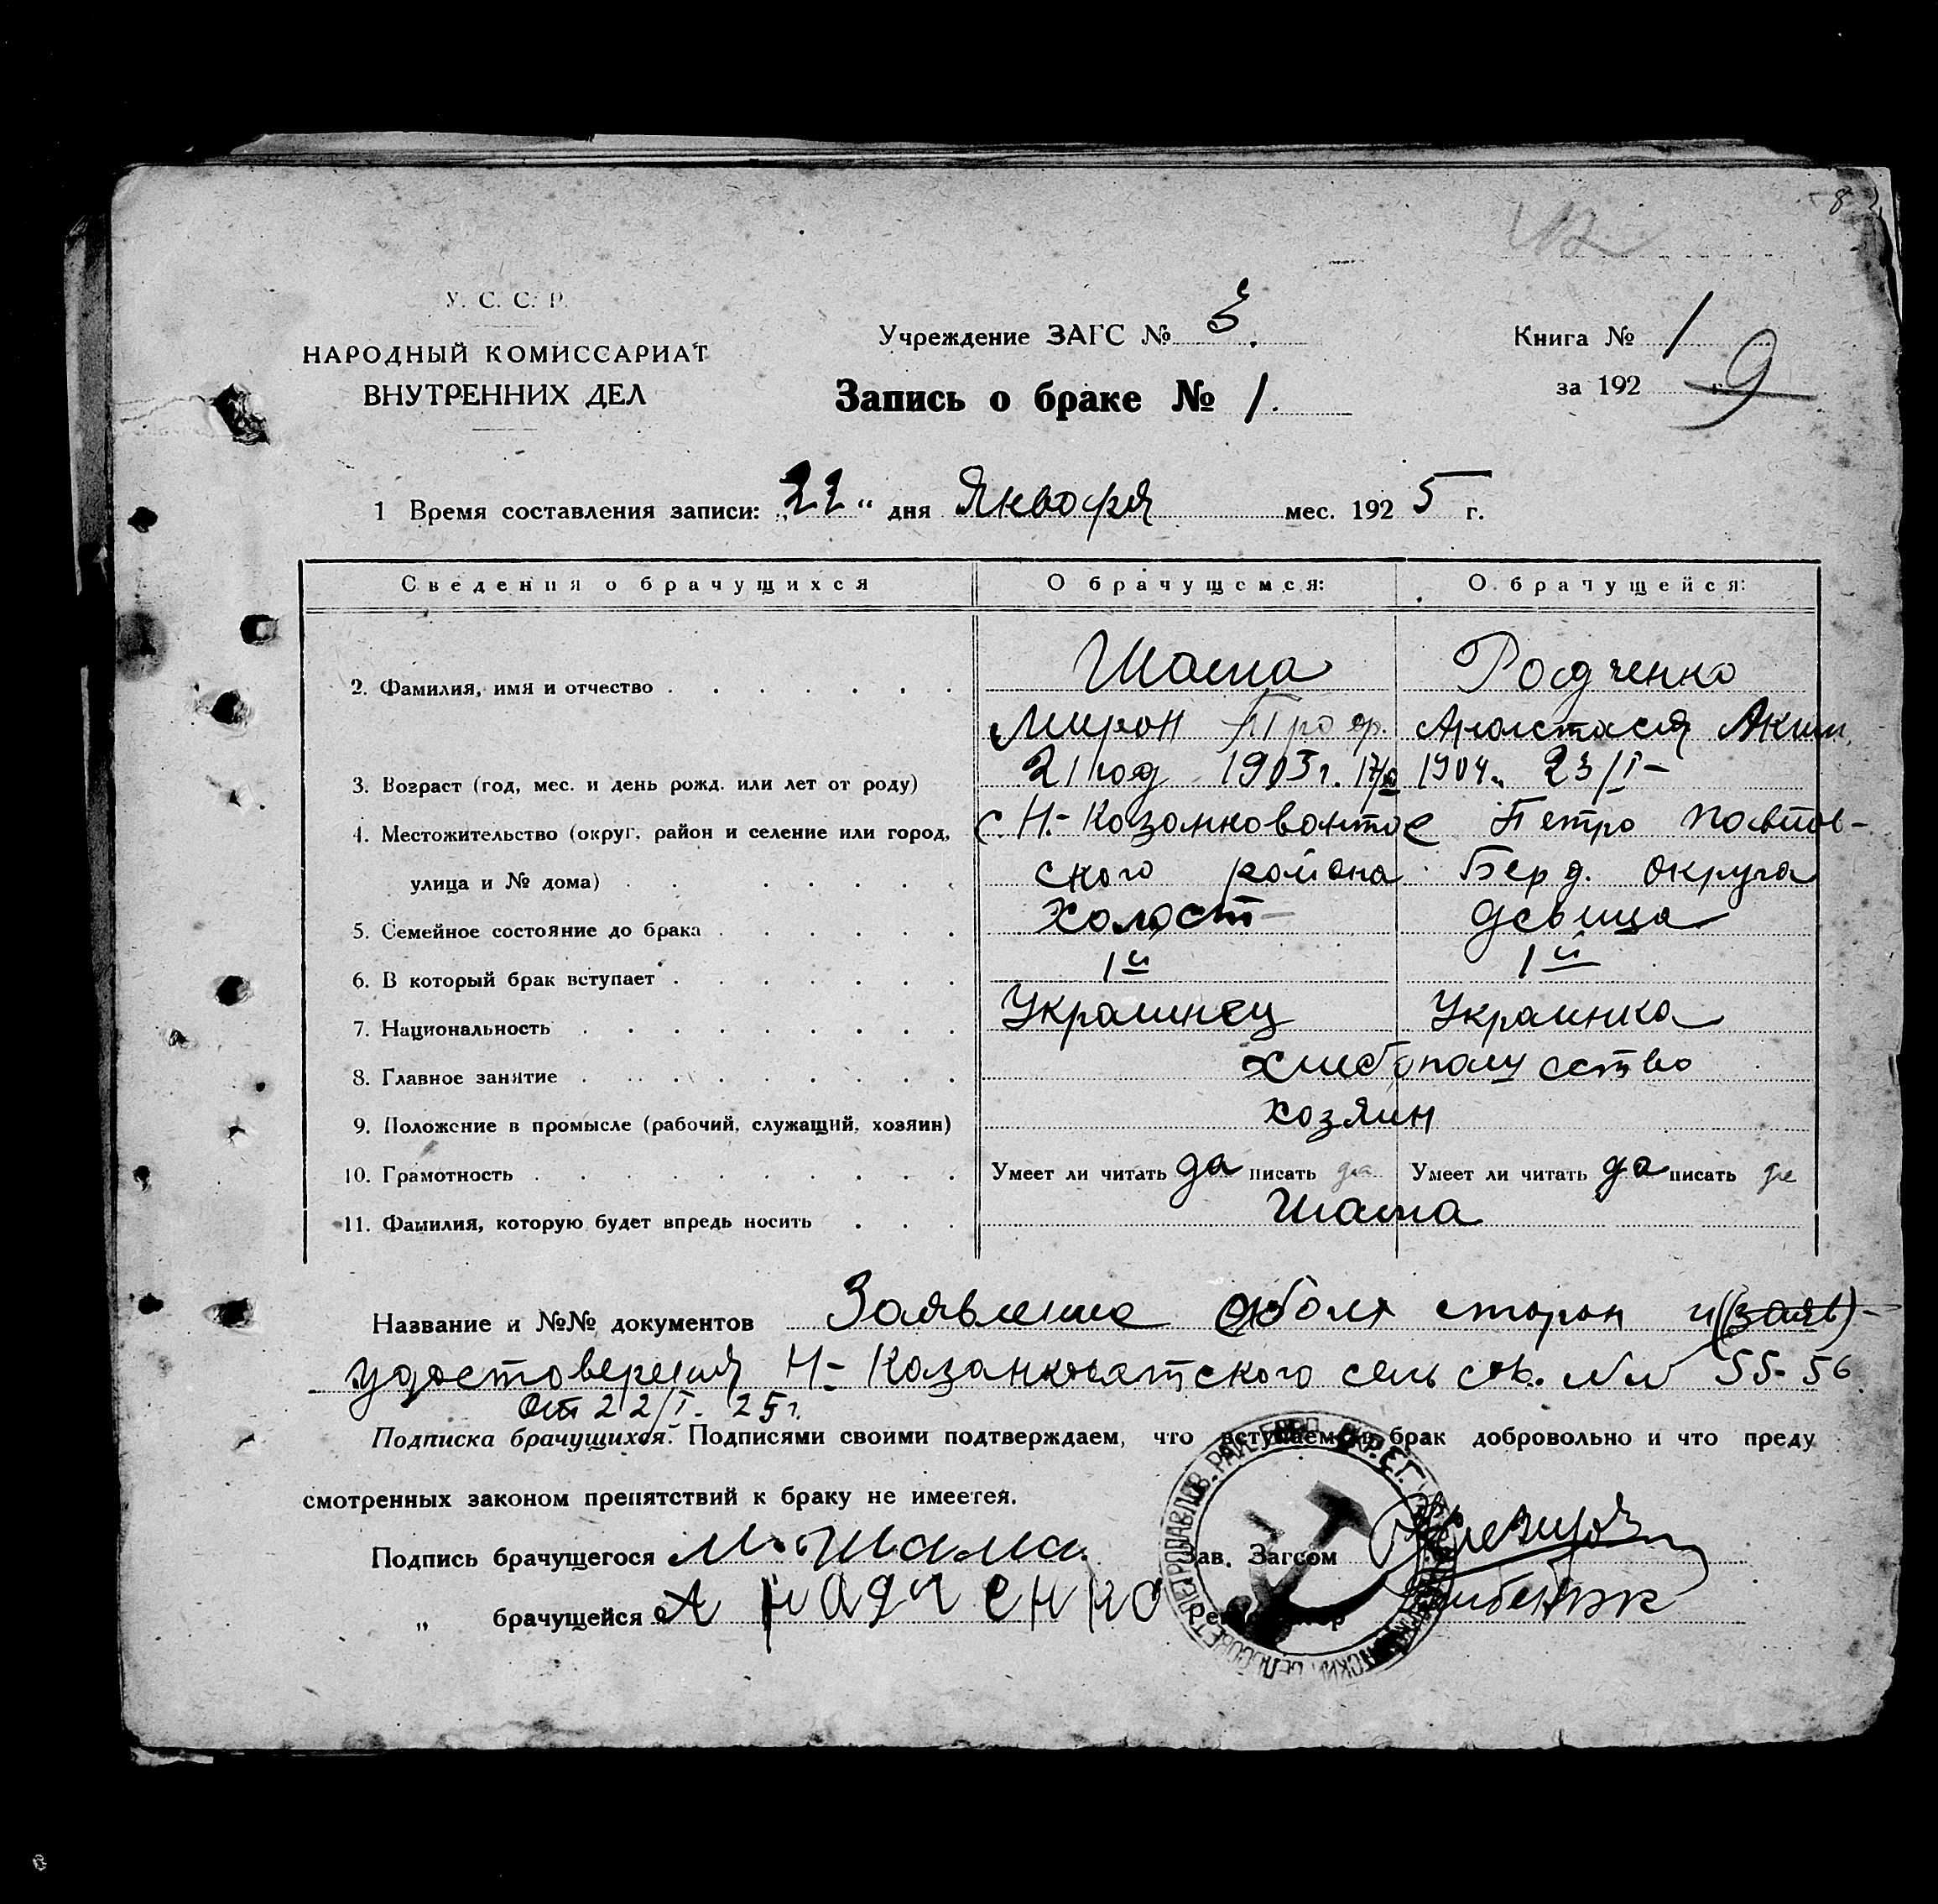 У. С. С. Р.
НАРОДНЫЙ КОМИССАРИАТ
ВНУТРЕННИХ ДЕЛ
Учреждение ЗАГС № 3.
Запись о браке № 1.
Книга № 1
за 192 г. 9
1 Время составления записи: „22“ дня Января мес. 1925 г.
Сведения о брачущихся О брачущемся: О брачущейся:
2. Фамилия, имя и отчество Шама Радченко
Мирон Проф. Анастасия Аким.
3. Возраст (год, мес. и день рожд. или лет от роду) 21 год 1903 г. 1904 23/I-
4. Местожительство (округ, район и селение или город, с. Н.- Петро павлов-
улица и № дома) ского района Берд. округа
5. Семейное состояние до брака Холост девица
6. В который брак вступает 1й 1й
7. Национальность Украинец Украинка
8. Главное занятие
9. Положение в промысле (рабочий, служащий, хозяин) хозяин
10. Грамотность Умеет ли читать да писать да Умеет ли читать да писать да
11. Фамилия, которую будет впредь носить Шама
Название и №№ документов Заявление обоих сторон и (заяв)-
удостоверения Н- сель сов. №№ 55-56
От 22/I- 25 г.
Подписка брачущихся. Подписями своими подтверждаем, что вступаем в брак добровольно и что преду
смотренных законом препятствий к браку не имеется.
Подпись брачущегося М. Шама. Зав. Загсом
„ брачущейся А Радченко